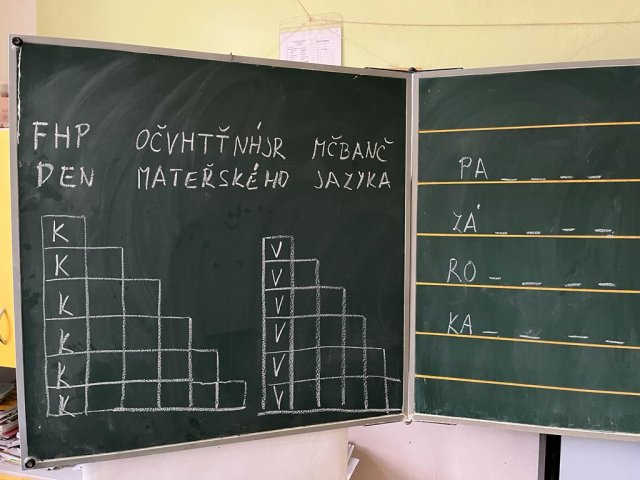 FHP OČVHTŤNH́JR MČBANČ
DEN MATEŘSKÉHO JAZYKA
K
K
K
K
K
K
V
V
V
V
V
V
PA _ _ _ _
ZÁ _ _ _ _
RO _ _ _ _
KA _ _ _ _